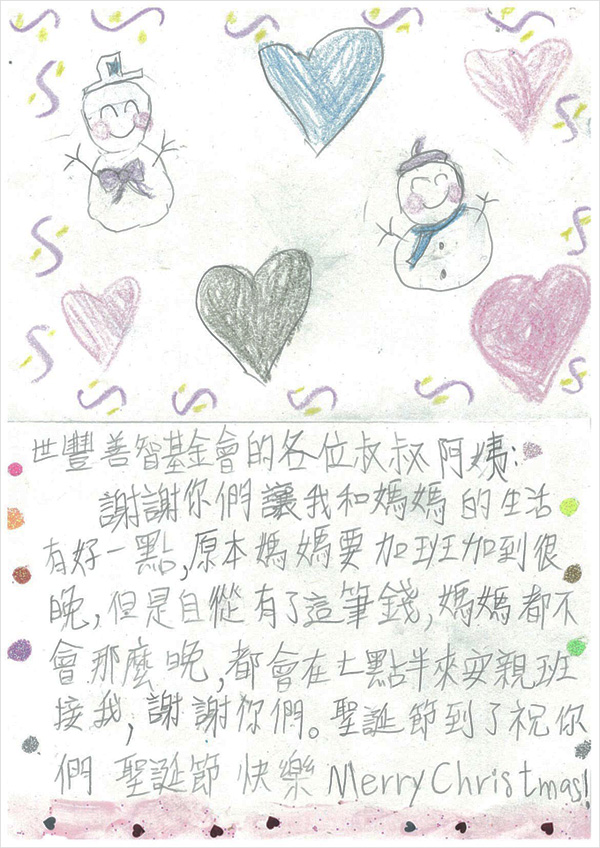 世豐善智基金會的各位叔叔阿姨:
謝謝你們讓我和媽媽的生活
有好一點,原本媽媽要加班加到很
晚,但是自從有了這筆錢,媽媽都不
會那麼晚,都會在七點半來安親班
接我,謝謝你們。聖誕節到了祝你
們 聖誕節 快樂 Merry Christmas!